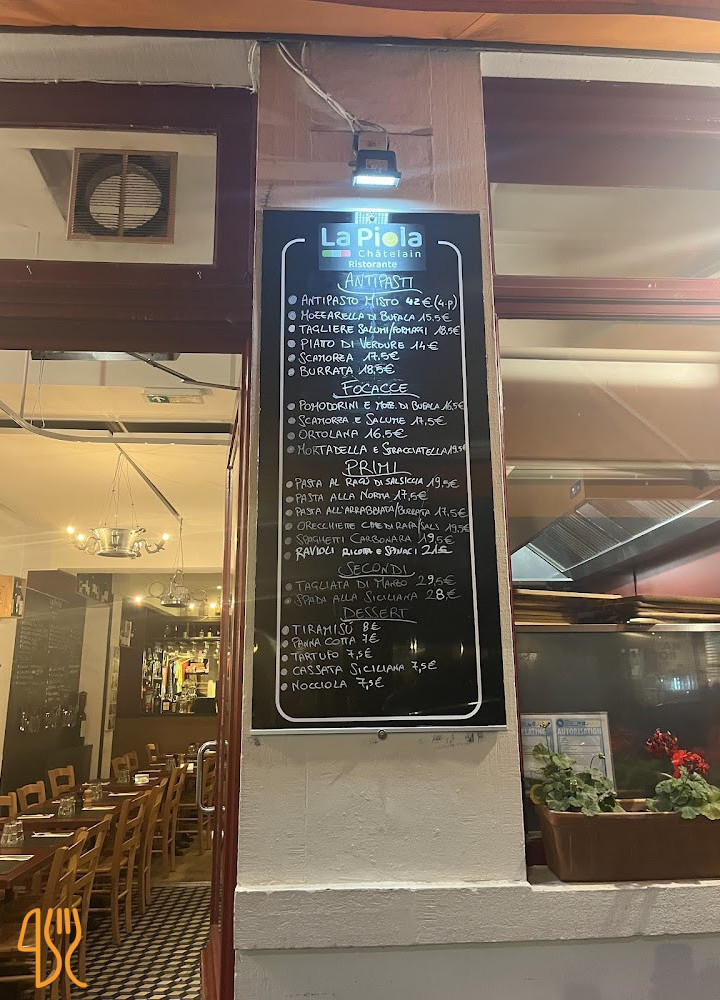 La Piola
Châtelain
Ristorante
ANTIPASTI
ANTIPASTO MISTO 42€ (4.P)
MOZZARELLA DI BUFALA 15.5€
TAGLIERE SALUMI/FORMAGGI 18.5€
PIATO DI VERDURE 14€
SCAMORZA 17.5€
BURRATA 18,5€
FOCACCE
POMODORINI E MOZZ. DI BUFALA 16.5€
SCAMORZA E SALUME 17,5€
ORTOLANA 16.5€
MORTADELLA E STRACCIATELLA 19.5€
PRIMI
PASTA AL RAGÙ DI SALSICCIA 19,5€
PASTA ALLA NORMA 17,5€
PASTA ALL'ARRABBIATA/BURRATA 17.5€
ORECCHIETTE CIME DI RAPA/SALS 19.5€
SPAGHETTI CARBONARA 19,5€
RAVIOLI RICOTTA E SPINACI 21€
SECONDI
TAGLIATA DI MANZO 29,5€
SPADA ALLA SICILIANA 28.€
DESSERT
TIRAMISÙ 8€
PANNA COTTA 7€
TARTUFO 7,5€
CASSATA SICILIANA 7,5€
NOCCIOLA 7,5€
AUTORISATION